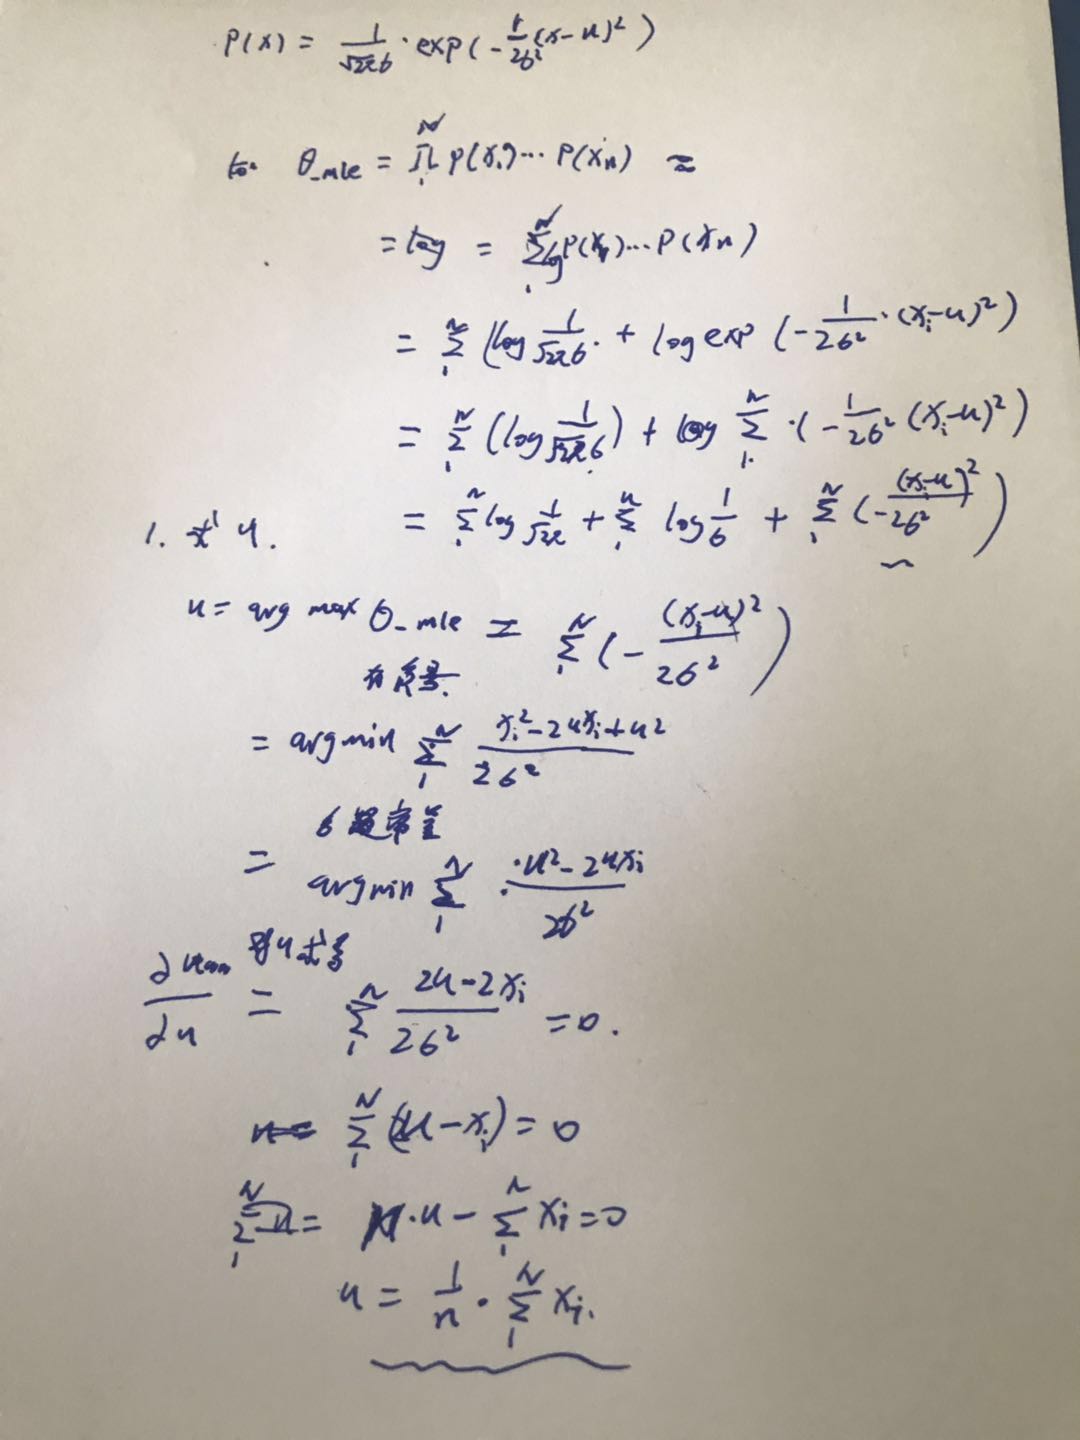 P(x) = 1/√2π6 · exp(-1/26²(x-u)²)
θ_mle = N∏1 P(xi)··· P(xn) ≈
= log = N∑1 log P(x1)··· P(xn)
= N∑1 (log 1/√2π6 · + log exp (-1/26² · (xi-u)²)
= N∑1 (log 1/√2π6) + log N∑1 · (-1/26² (xi-u)²)
= N∑1 log 1/√2π + N∑1 log 1/6 + N∑1 (-(xi-u)²/26²)
1. 求 u.
u = arg max θ_mle = N∑1 (-(xi-u)²/26²)
有负号.
= argmin N∑1 xi²-2uxi+u²/26²
6 常量
= argmin N∑1 ·u²-2uxi/26²
对u求导
∂u/∂u = N∑1 2u-2xi/26² =0.
N∑1 (u-xi)=0
N∑1 u = N·u - N∑1 xi=0
u = 1/n · N∑1 xi.